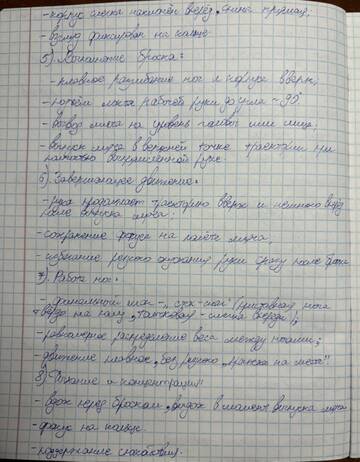 - корпус слегка наклонён вперёд, спина прямая;
- взгляд фиксирован на кольце.
5) Выполнение броска:
- плавное разгибание ног и корпуса вверх,
- подъём локтя рабочей руки до угла ~90°
- вывод мяча на уровень головы или лица.
- выпуск мяча в верхней точке траектории при
полностью выпрямленной руке.
6) Завершающее движение:
- рука продолжает траекторию вверх и немного вперёд
после выпуска мяча;
- сохранение фокуса на полёте мяча,
- избегание резкого опускания руки сразу после броска
7) Работа ног:
- финальный шаг - „стек-
вперёд на полу,
- равномерное распределение веса между ногами;
- движение плавное, без резкого „прыжка на месте".
8) Дыхание и концентрация
- вдох перед броском, выдох в момент выпуска мяча
- фокус на кольце.
- поддержание спокойствия.